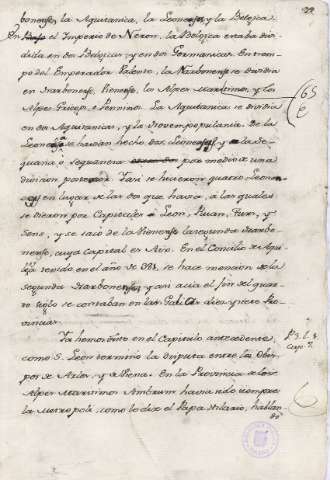 bonense, la Aquitanica, la Leonesa y la Belgica
En el Imperio de Neron, la Belgica estaba divi-
dida en dos Belgicas, y en dos Germanicas. En tiem-
po del Emperador Valente, la Narbonense se dividia
en Narbonense, Vienense, los Alpes Maritimos, y los
Alpes Griegos o Peninos. La Aquitanica se dividia
en dos Aquitanicas, y la Novempopulania. De la
Leonesa se havian hecho dos Leonesas, y la de
quania o Sequanesa por medio de una
division posterior. Y asi se hicieron quatro Leone-
sas en lugar de las dos que havia, á las quales
se dieron por Capitales á Leon, Ruan, Turs, y
Sens, y se saco de la Vienense la segunda Narbo-
nense, cuya Capital es Aix. En el Concilio de Aqui-
leja tenido en el año de 381, se hace mencion de la
segunda Narbonense, y asi acia el fin del quar-
to siglo se contaban en las Galias diez y siete Pro-
vincias.
Ya hemos visto en el Capitulo antecedente,
como S. Leon terminó la disputa entre los Obis-
pos de Arles, y de Viena. En la Provincia de los
Alpes Maritimos Ambrum havia sido siempre
la Metropoli, como lo dice el Papa Hilario, hallan
do